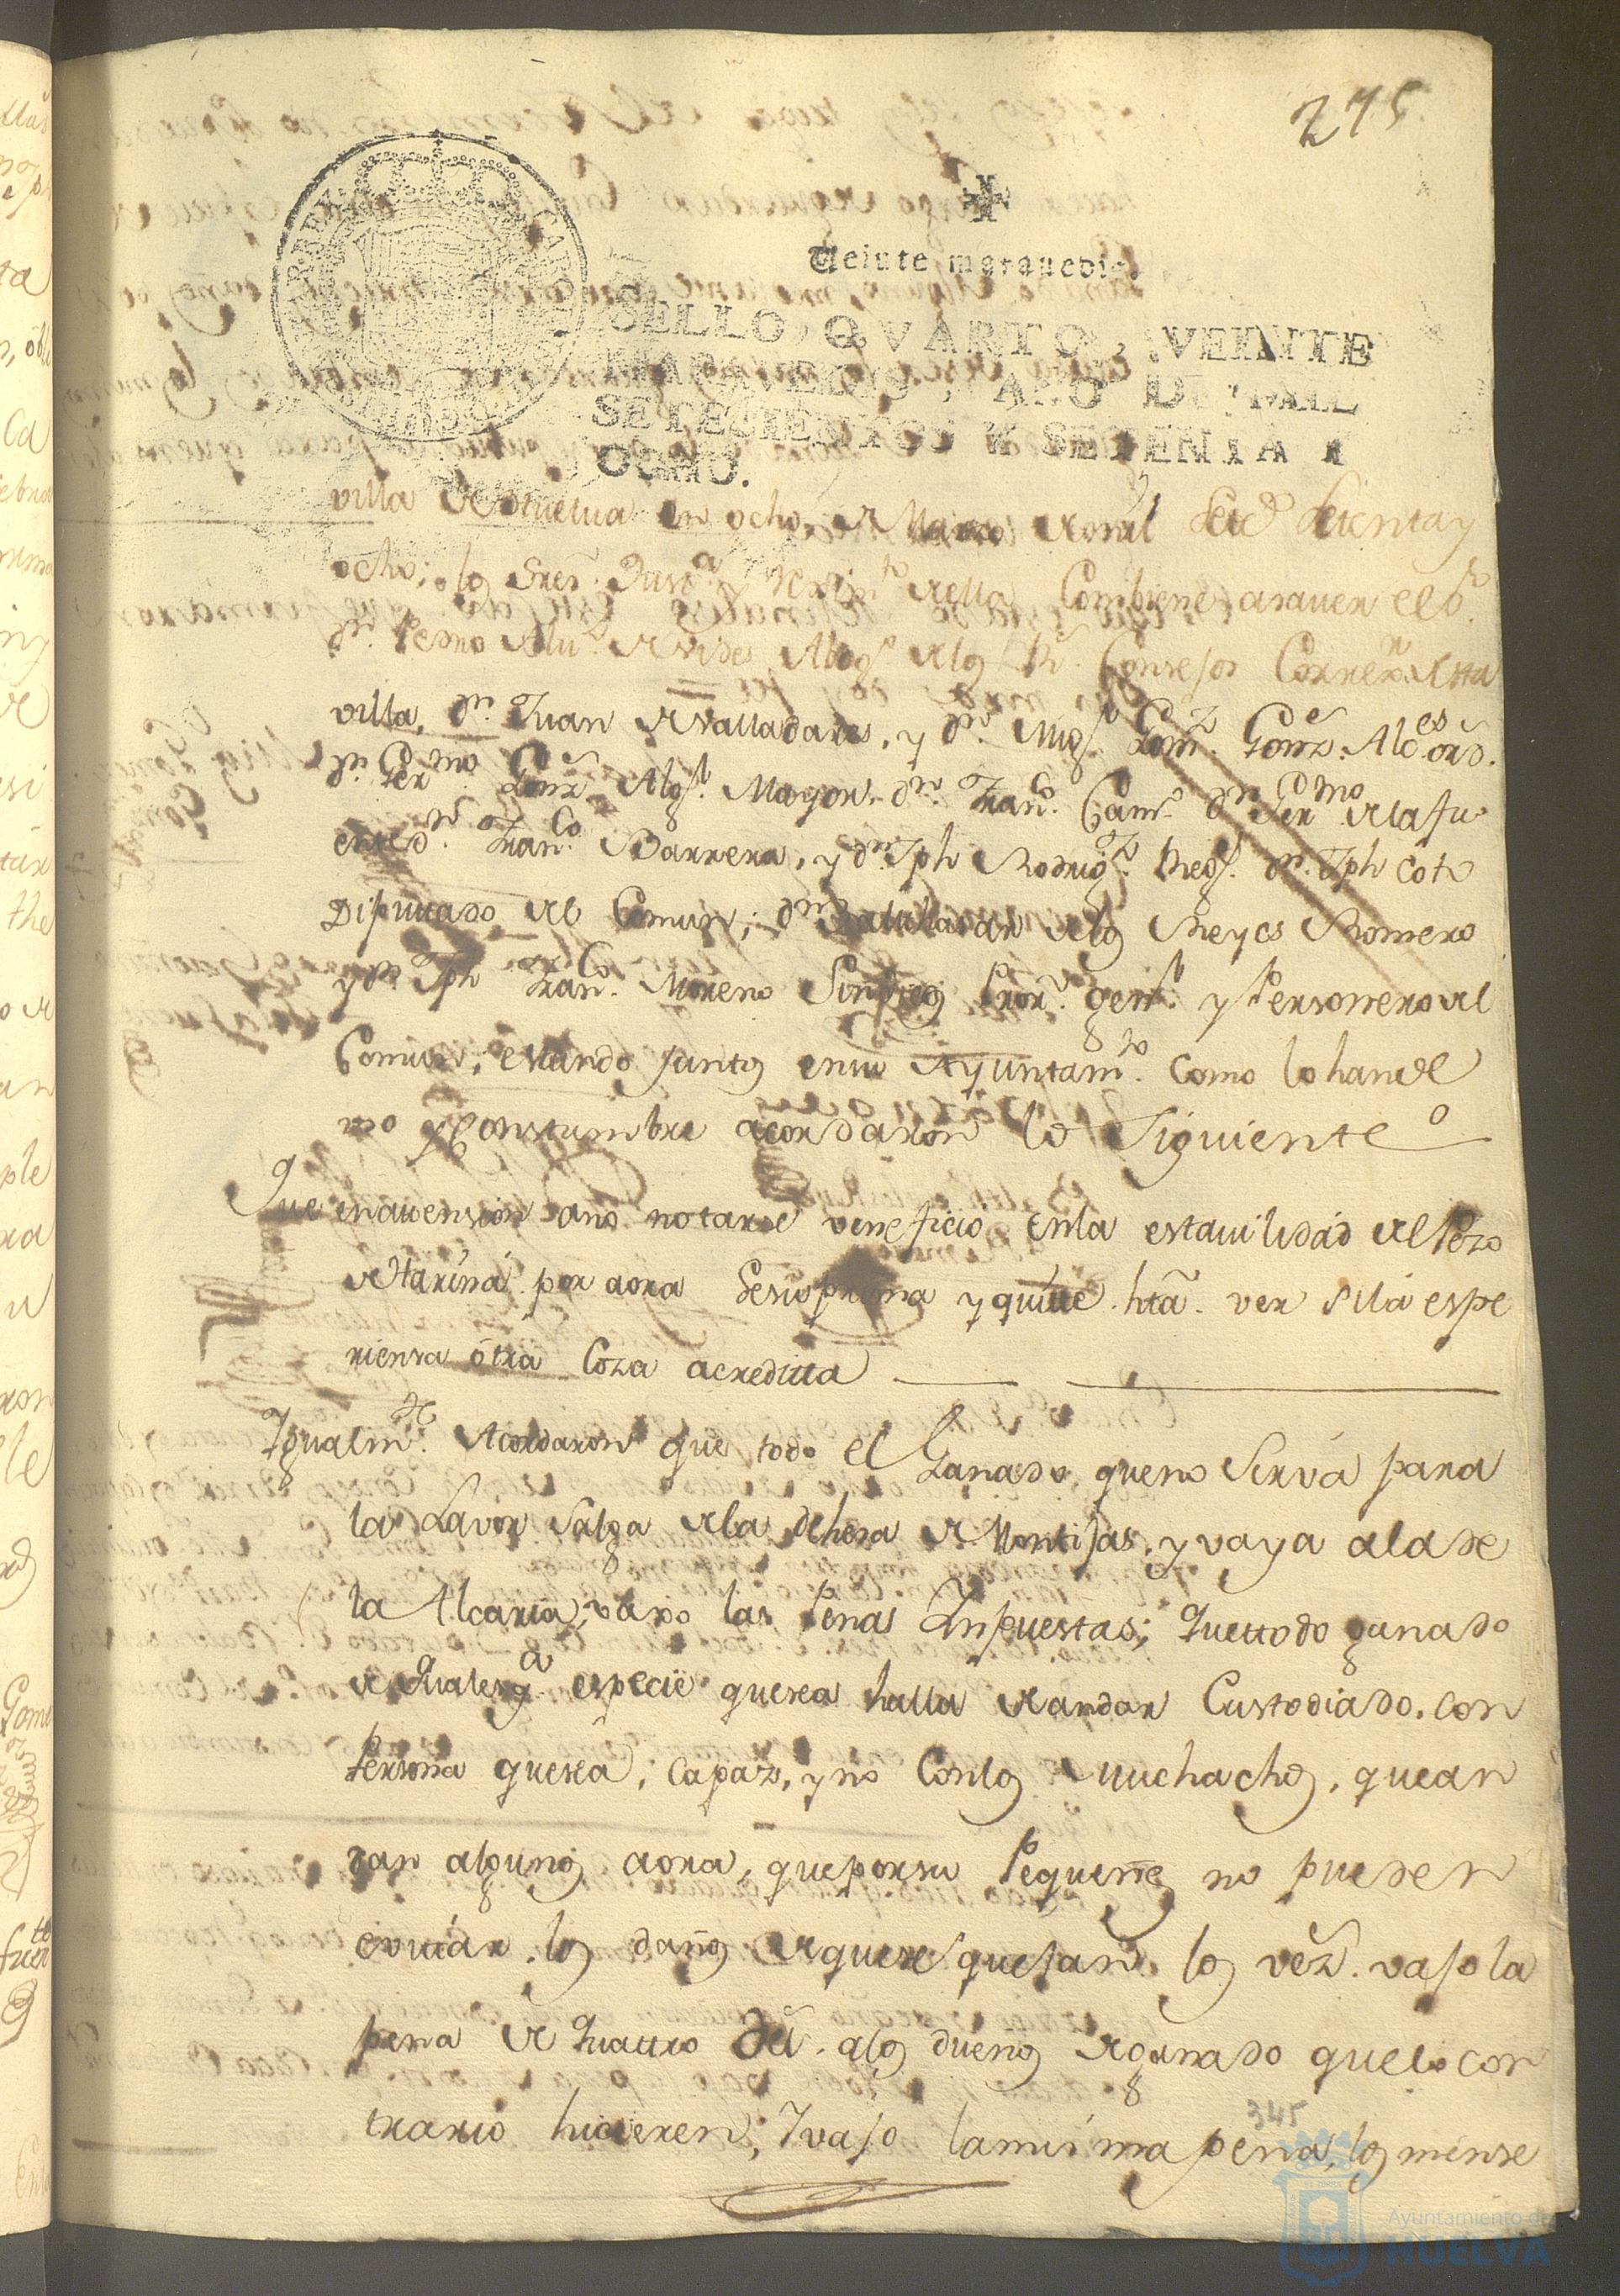 275
Veinte maravedis.
SELLO QVARTO, VEINTE
MARAVEDIS, AÑO DE MIL
SETECIENTOS Y SETENTA Y
OCHO.
villa de Huelva en ocho de Marzo de mil Setd. Setenta y
ocho; los Sres. Justa. y Reximto. della Combiene asaver el Sr.
Dn. Pedro de Abogo. de los Rs. Consejos Correxr. de esta
villa, Dn. Juan de Valladares, y Dn. Migl. Gomz. Gonz. Alces. ord.
Dn. Germo. Gonz. Algl. Mayor. Dn. Franco. Dn. Germo. de la fu
ente Dn. Franco. Barrera, y Dn. Jph Rodrigz. Regs. Dn. Jph Coto
Diputado del Comun; Dn. Balthasar de los Reyes Romero
y Dn. Jph Franco. Moreno Sindicos Pror. genl. y Personero del
Comun; estando juntos en su Ayuntamto. como lo han de
uso y Constumbre acordaron lo Siguiente
Que en atension año notarse veneficio en la estavilidad del Pezo
de Harina por aora Sesuprima y quitte hta. ver si la espe
riensa otra Coza acreditta
Igualmte. Acordaron que todo el Ganado que no Serva para
la Lavor Salga de la dehesa de Montijas, y vaya a la de
la Alcaria, vaxo las Penas Impuestas; Que ttodo ganado
de qualesqa. especie que sea halla de andar Custodiado con
Persona que sea, capaz, y no Con los muchachos, que an
dan algunos aora, que por su Pequeñes no pueden
evitar los daños de que se quejan los vezs. vajo la
pena de Quattro Du. a los dueños de ganado que lo con
trario hicieren; Y vajo la misma pena, los mense
345
Ayuntamiento de
HUELVA